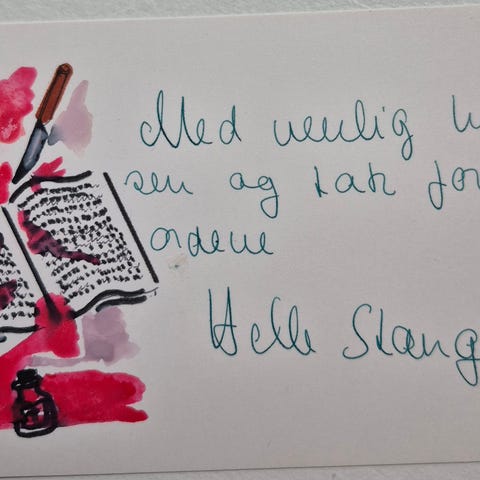 Med venlig h
sen og tak for
ordene
Helle Stang